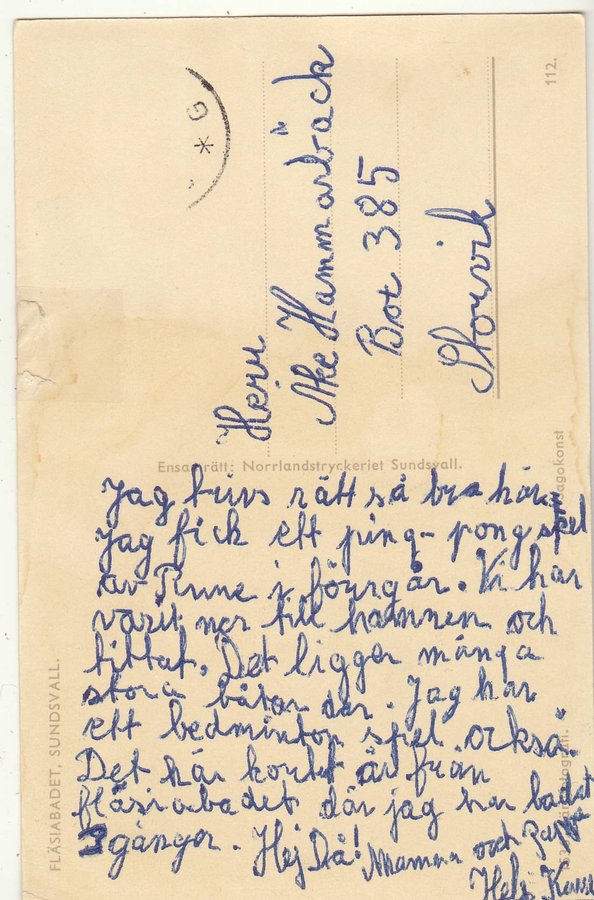 Herr
Åke Hammarbäck
Box 385
Storvik
112.
Ensamrätt: Norrlandstryckeriet Sundsvall.
FLÄSIABADET, SUNDSVALL.
Jag trivs rätt så bra här.
Jag fick ett ping-pong spel
av i förrgår. Vi har
varit ner till hamnen och
tittat. Det ligger många
stora båtar där. Jag har
ett bedminton spel också.
Det här kortet är från
fläsiabadet där jag har badat
3 gånger. Hej Då!
Mamma och Pappa